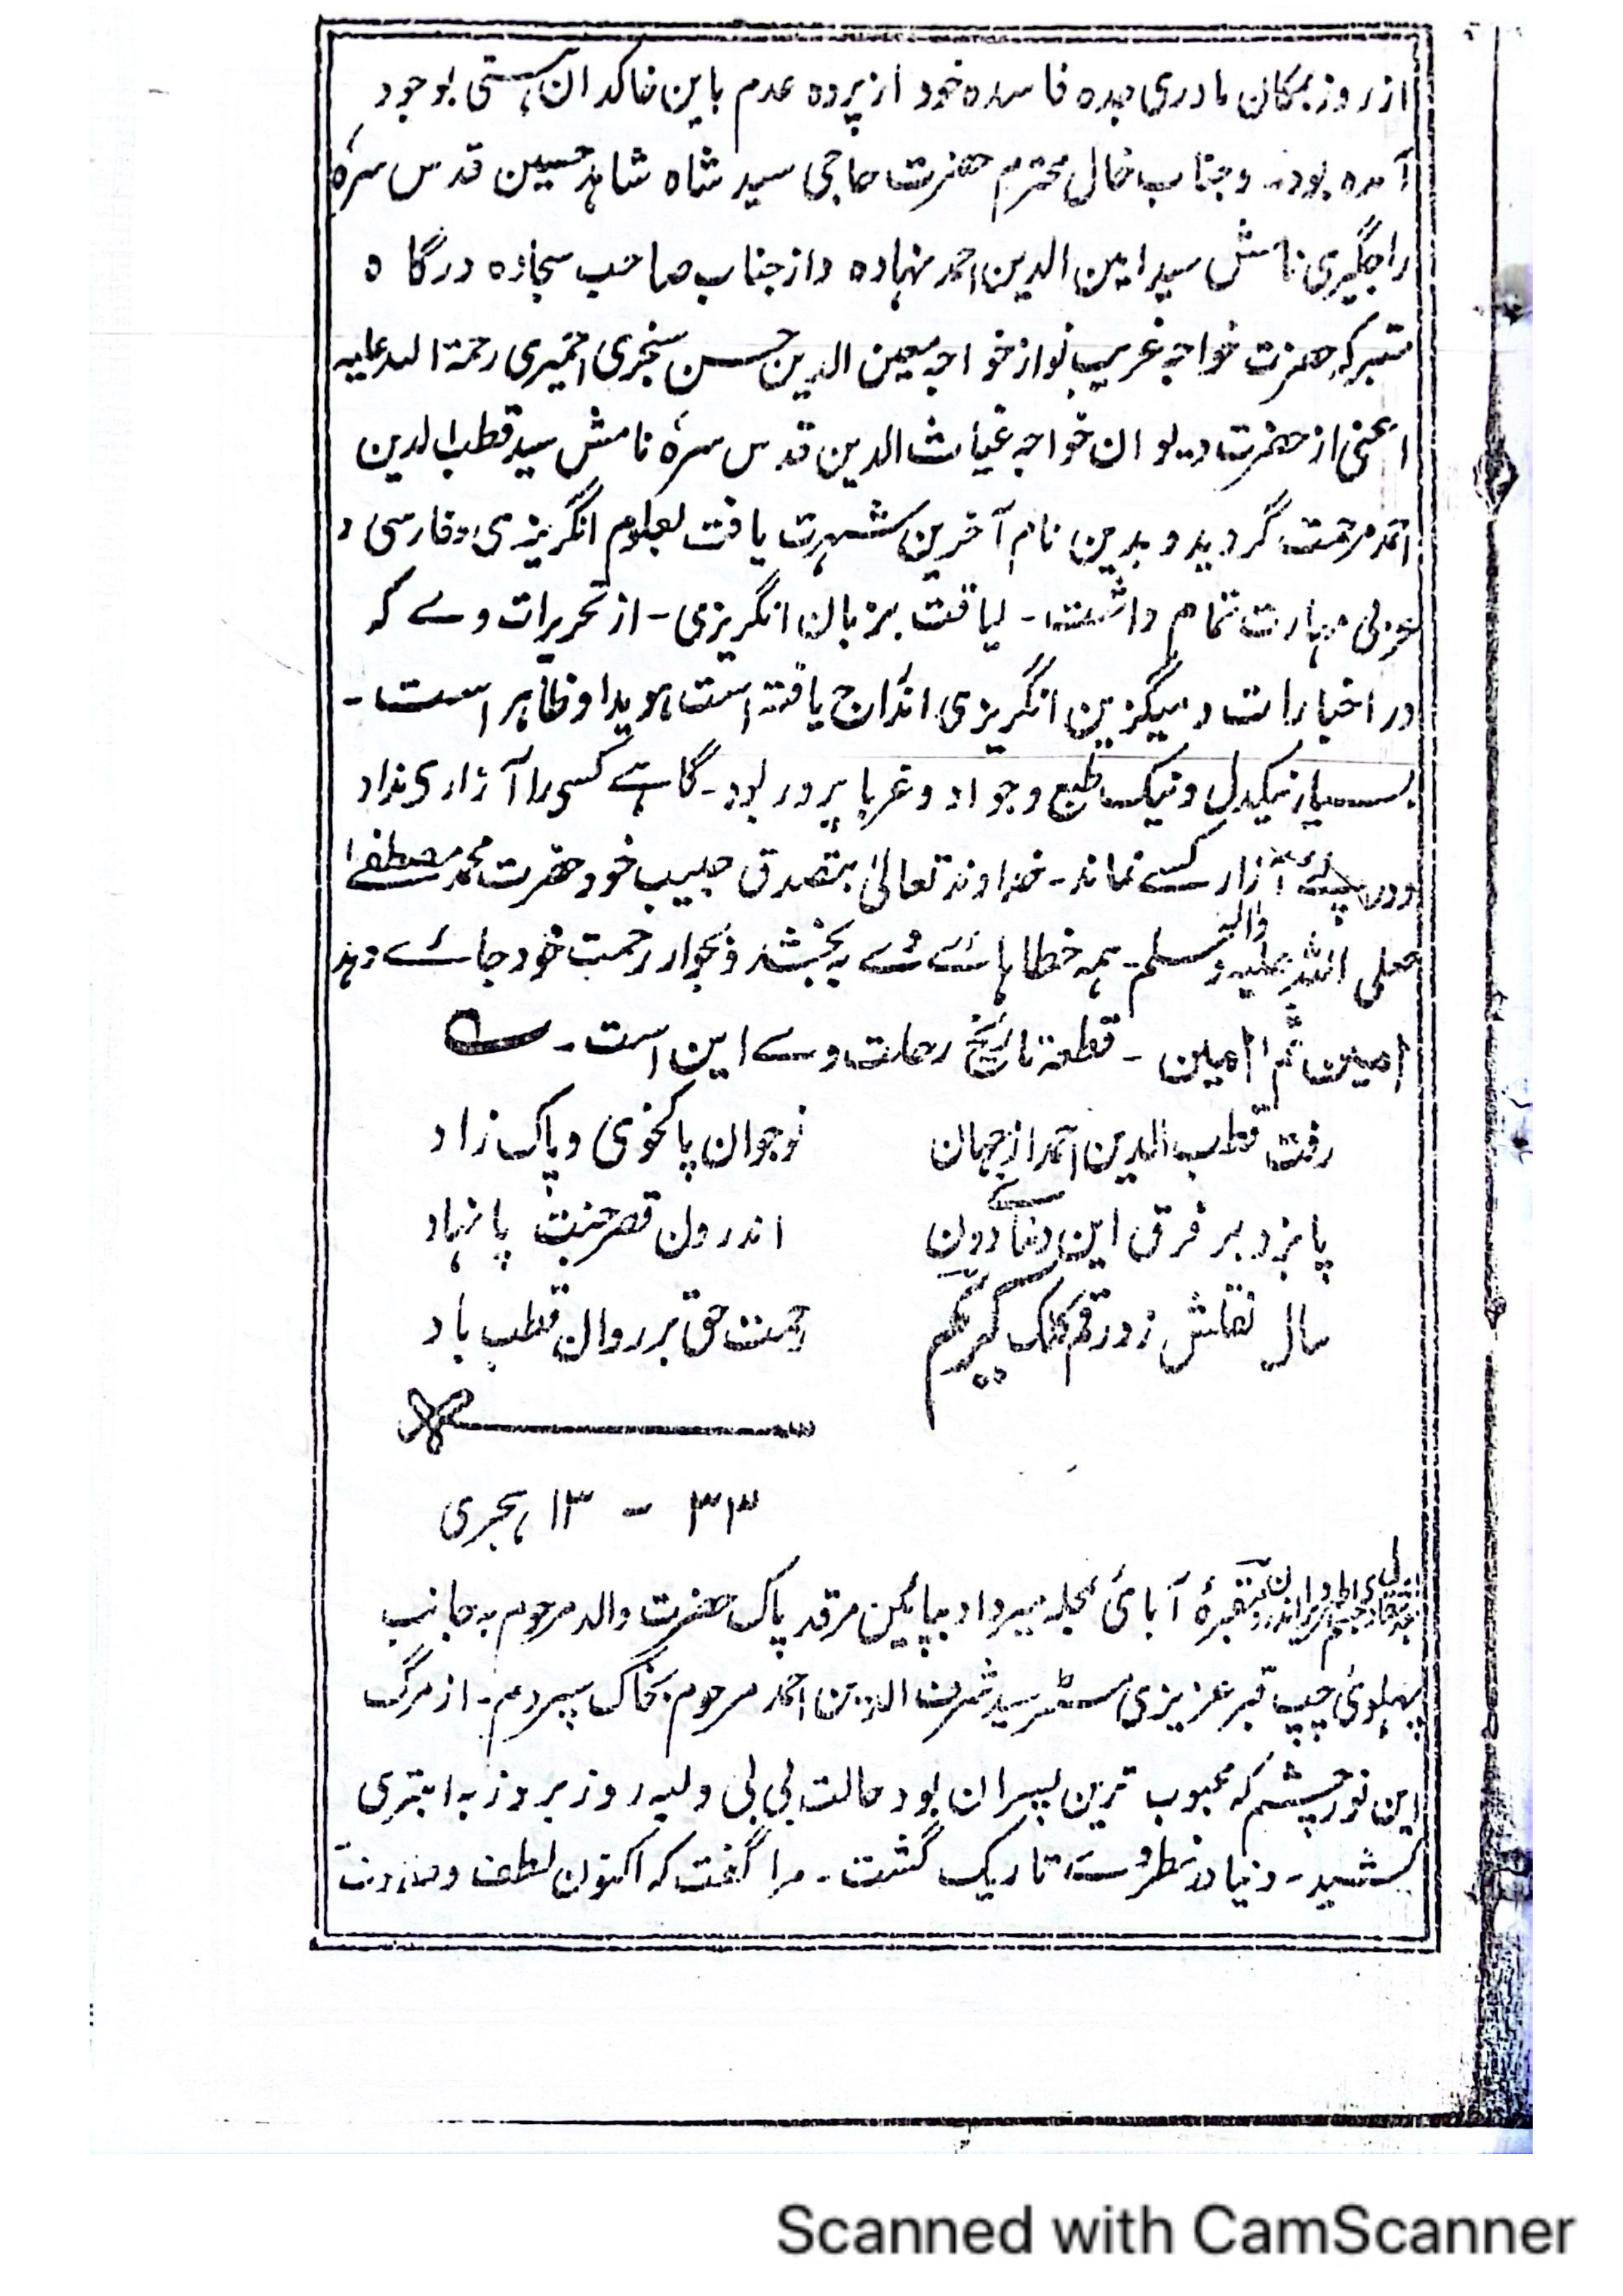 از روز بمکان مادری جده فاسده خود از پرده عدم باین خاکدان هستی بوجود
آمده بود۔ و جناب خال محترم حضرت حاجی سید شاه شاہد حسین قدس سرہٗ
راجگیری نامش سید امین الدین احمد نہاده و از جناب صاحب سجاده درگاه
متبرکہ حضرت خواجہ غریب نواز خواجہ معین الدین حسن سنجری اجمیری رحمۃ اللہ علیہ
اعنی از حضرت دیوان خواجہ غیاث الدین قدس سرہٗ نامش سید قطب الدین
احمد مرحمت گردید و بدین نام آخرین شہرت یافت بعلوم انگریزی و فارسی و
عربی مہارت تمام داشت۔ لیاقت بزبان انگریزی۔ از تحریرات وے کہ
در اخبارات و میگزین انگریزی اندراج یافتہ است ہویدا و ظاہر است۔
بسیار نیکدل و نیک طبع و جواد و غربا پرور بود۔ گاہے کسی را آزاری نداد
و در پئے آزار کسے نماند۔ خداوند تعالیٰ بتصدق حبیب خود حضرت محمد مصطفےٰ
صلی اللہ علیہ و آلہ وسلم۔ ہمہ خطا ہائے وے بہ بخشد و بجوار رحمت خود جائے دہد
آمین ثم آمین۔ قطعۂ تاریخ رحلت وے این است۔
رفت قطب الدین احمد از جہان نوجوان پاکخوی و پاک زاد
پا بزد بر فرق این دنیائے دون اندرون قصر جنت پا نہاد
سال نقلش زد رقم کلک کریم رحمت حق بر روان قطب باد
۳۳ - ۱۳ ہجری
اندرون مقبرۂ آبائی محلہ میرداد بپائین مرقد پاک حضرت والد مرحوم بہ جانب
پہلوئ چپ قبر عزیزی مسٹر سید شرف الدین احمد مرحوم بخاک سپردم۔ از مرگ
این نور چشم کہ محبوب ترین پسران بود حالت بی بی ولیہ روز بروز بہ ابتری
کشید۔ دنیا در نظرش تاریک گشت۔ مرا گفت کہ اکنون لطف
Scanned with CamScanner